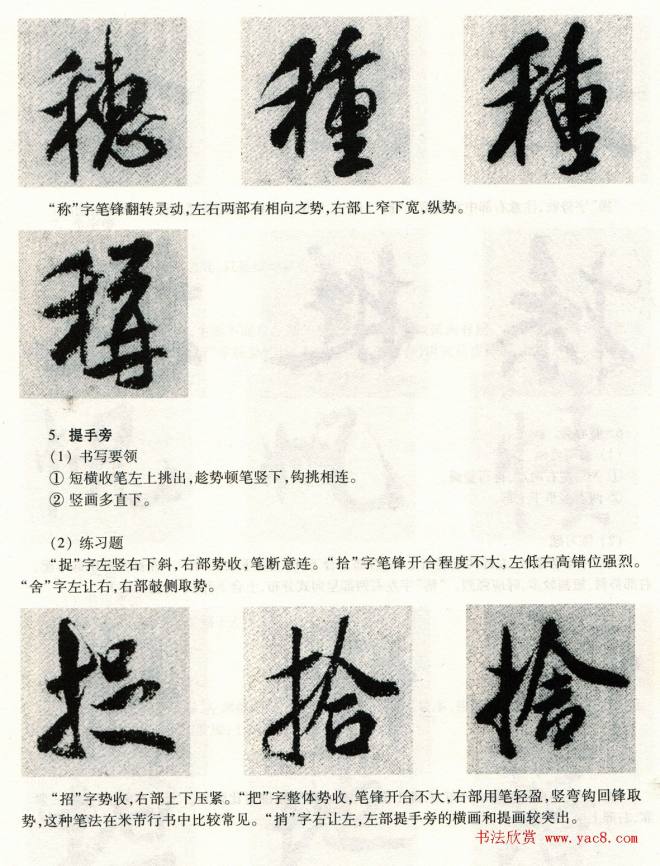 穗 種 種
“称”字笔锋翻转灵动,左右两部有相向之势,右部上窄下宽,纵势。
稱
5. 提手旁
(1) 书写要领
① 短横收笔左上挑出,趁势顿笔竖下,钩挑相连。
② 竖画多直下。
(2) 练习题
“捉”字左竖右下斜,右部势收,笔断意连。“拾”字笔锋开合程度不大,左低右高错位强烈。
“舍”字左让右,右部敧侧取势。
捉 拾 捨
“招”字势收,右部上下压紧。“把”字整体势收,笔锋开合不大,右部用笔轻盈,竖弯钩回锋取
势,这种笔法在米芾行书中比较常见。“捎”字右让左,左部提手旁的横画和提画较突出。
书法欣赏 www.yac8.com